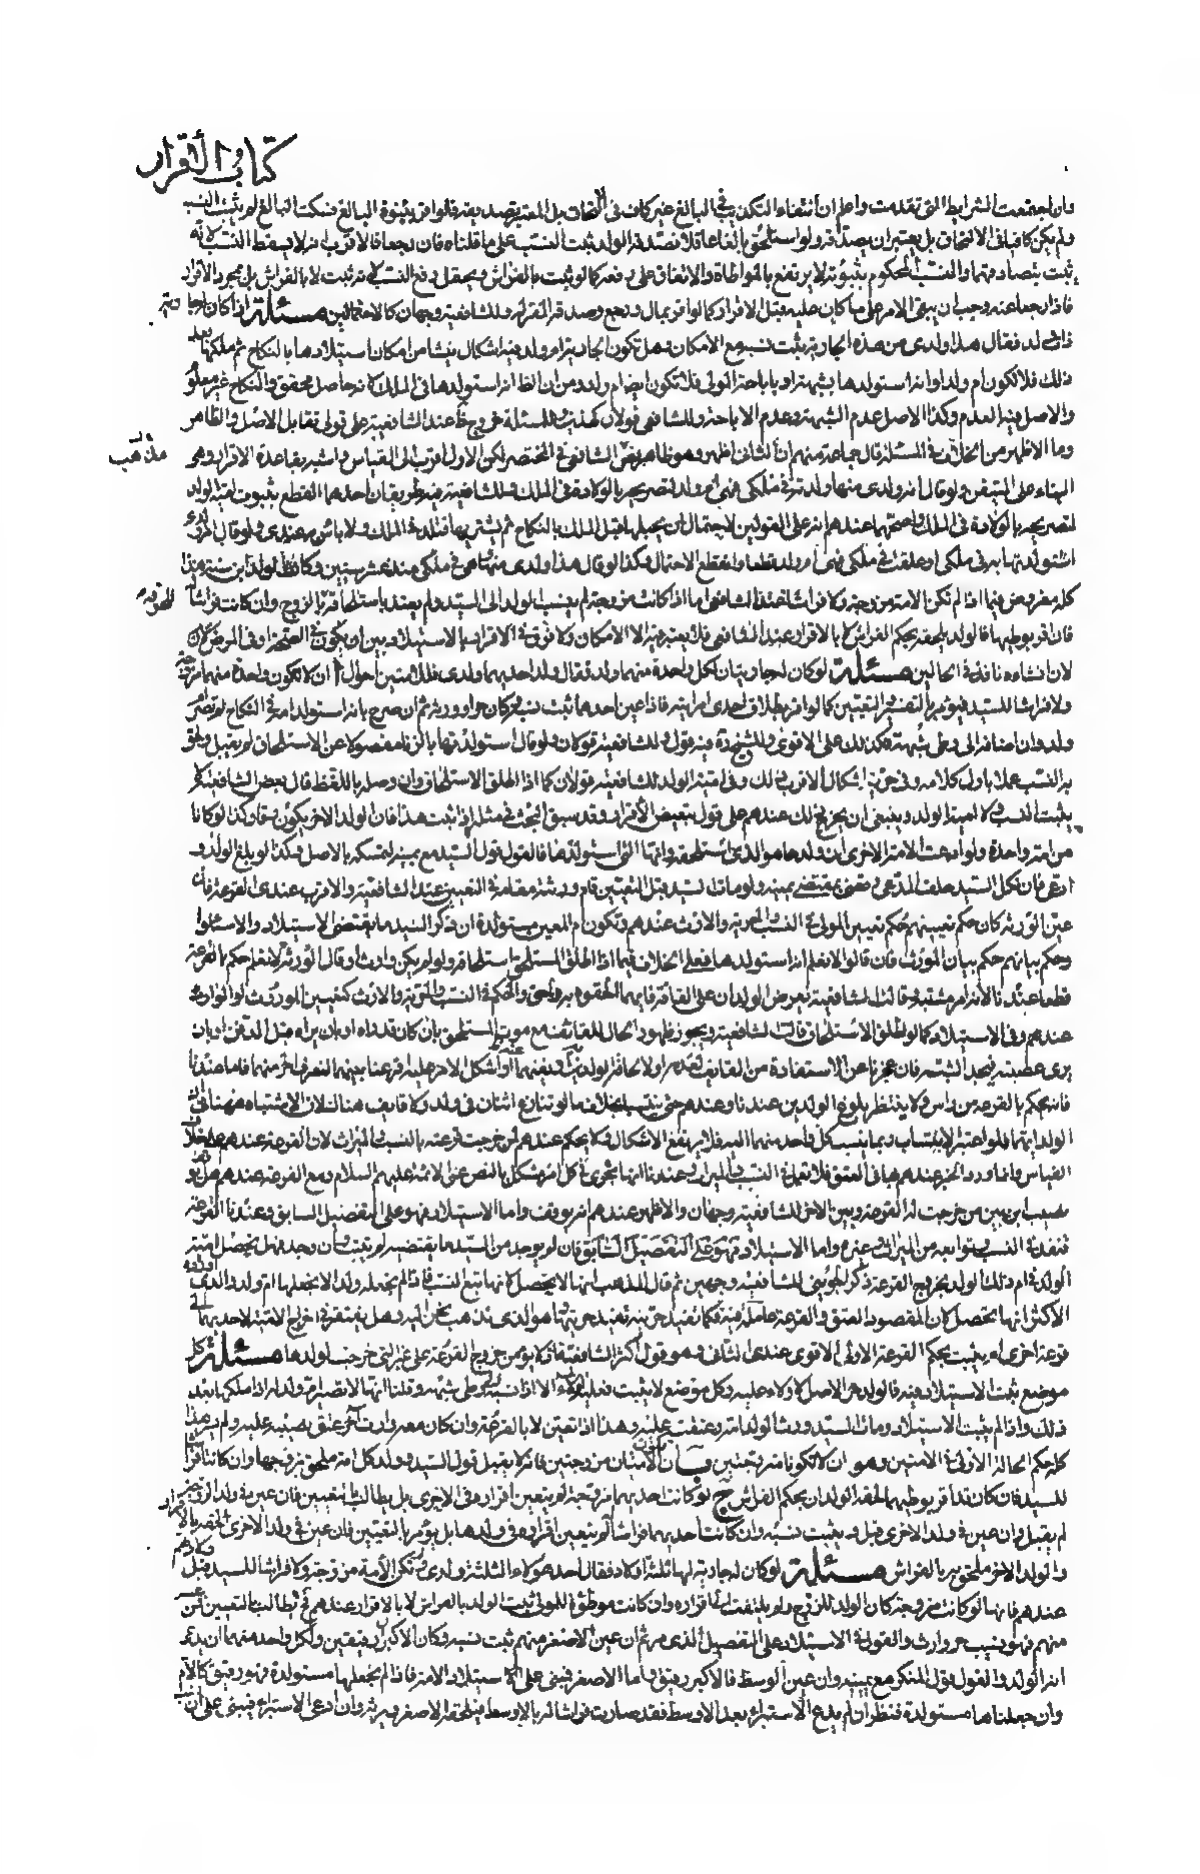 كتاب الأقرار
وان اجتمعت الشرايط التى تقدمت واعلم ان انتفاء التكذيب فى البالغ غير كاف فى الالحاق بل المعتبر تصديقه فلو اقر ببنوة البالغ فسكت البالغ لم يثبت النسب
ولم يكن كافيا فى الالتحاق بل يعتبر ان يصدقه ولو استلحق بالغا عاقلا فصدقه الولد ثبت النسب على ما قلناه فان رجعا فالاقرب انه لا يسقط النسب لانه
ثبت بتصادقهما والنسب المحكوم بثبوته لا يرتفع بالمواطاة والاتفاق على رفعه كما لو ثبت بالفراش ويحتمل رفع النسب لانه ثبت لا بالفراش بل بمجرد الاقرار
فاذا رجعا عنه وجب ان يبقى الامر على ما كان عليه قبل الاقرار كما لو اقر بمال ورجع وصدقه المقر له وللشافعية وجهان كالاحتمالين مسئلة اذا كان له جارية
ذات ولد فقال هذا ولدى من هذه الجارية يثبت نسبه مع الامكان وهل تكون الجارية ام ولد فيه اشكال ينشا من امكان استيلادها بالنكاح ثم ملكها بعد
ذلك فلا تكون ام ولد او انه استولدها بشبهة او باباحة المولى فلا تكون ايضا ام ولد ومن ان الظاهر انه استولدها فى الملك لانه حاصل محقق والنكاح غير معلوم
والاصل فيه العدم وكذا الاصل عدم الشبهة وعدم الاباحة وللشافعى قولان كهذين للمسئلة خروج عند الشافعية على قولى تقابل الاصل والظاهر
وما الاظهر من الخلاف فى المسئلة قال جماعة منهم ان الثانى اظهر وهو ظاهر نص الشافعى فى المختصر لكن الاول اقرب الى القياس واشبه بقاعدة الاقرار وهى
البناء على اليقين ولو قال انه ولدى منها ولدته فى ملكى فهى ام ولد لتصريحه بالولادة فى الملك وللشافعية فيه طريقان احدهما القطع بثبوت امية الولد
لتصريحه بالولادة فى الملك واصحهما عندهم انه على القولين لاحتمال ان يحبلها قبل الملك بالنكاح ثم يشتريها فتلد فى الملك ولا باس به عندى ولو قال انه ولدى
استولدتها به فى ملكى او علقت فى ملكى فهى ام ولد قطعا وانقطع الاحتمال وكذا لو قال هذا ولدى منها وهى فى ملكى منذ عشر سنين وكان الولد ابن سنة وهذا
كله مفروض فيما اذا لم تكن الامة مزوجة ولا فراشا عند الشافعى اما اذا كانت مزوجة لم ينسب الولد الى السيد ولم يعتد باستلحاقه للحوقه بالزوج وان كانت فراشا له
فان اقر بوطيها فالولد يلحقه بحكم الفراش لا بالاقرار عند الشافعى فلا يعتبر فيه الا الامكان ولا فرق فى الاقرار بالاستيلاد بين ان يكون فى الصحة او فى المرض
لان انشاءه نافذ فى الحالين مسئلة لو كان له جاريتان لكل واحدة منهما ولد فقال ولد احديهما ولدى فللامتين احوال أ ان لا تكون واحدة منهما مزوجة
ولا فراشا للسيد فيؤمر بالتعيين كما لو اقر بطلاق احدى امراتيه فاذا عين احدهما ثبت نسبه وكان حرا وورثه ثم ان صرح بانه استولد امه فى النكاح لم تصر ام
ولد وان اضافه الى وطى شبهة فكذلك على الاقوى وللشيخ ره فيه قول وللشافعية قولان ولو قال استولدتها بالزنا مفصولا عن الاستلحاق لم يقبل ويلحق
به النسب عملا باول كلامه وفى حرية اشكال الاقرب ذلك وفى امية الولد للشافعية قولان كما اذا اطلق الاستلحاق وان وصله باللفظ قال بعض الشافعية لا
يثبت النسب ولا امية الولد وينبغى ان يخرج ذلك عندهم على قولى تبعيض الاقرار وقد سبق البحث فى مثله اذا ثبت هذا فان الولد الاخر يكون رقا وكذا لو كانا
من امة واحدة ولو ادعت الامة الاخرى ان ولدها هو الذى استلحقه وانها التى استولدها فالقول قول السيد مع يمينه لتمسكه بالاصل وكذا لو بلغ الولد و
ادعى فان نكل السيد حلف المدعى وقضى بمقتضى يمينه ولو مات السيد قبل التعيين قام ورثته مقامه فى التعيين عند الشافعية والاقرب عندى القرعة فان
عين الورثة كان حكم تعيينهم حكم تعيين المولى فى النسب والحرية والارث عندهم وتكون ام المعين مستولدة ان ذكر السيد ما يقتضى الاستيلاد والا سئلوا
وحكم بيانهم حكم بيان المورث فان قالوا لا نعلم انه استولدها فعلى الخلاف فيما اذا اطلق المستلحق استلحاقه ولو لم يكن وارث او قال الورثة لا نعلم حكم بالقرعة
قطعا عندنا لانه امر مشتبه وقالت الشافعية يعرض الولدان على القافة فايهما الحقوه به لحق والحكم فى النسب والحرية والارث كتعيين المورث او الوارث
عندهم وفى الاستيلاد كما لو اطلق الاستلحاق قالت الشافعية ويجوز ظهور الحال للقائف مع موت المستلحق بان كان قد راه او بان يراه قبل الدفن او بان
يرى عصبته فيجد الشبه فان عجزنا عن الاستفادة من القايف لعدمه او لالحاقه الولدين به او نفيهما عنه او اشكل الامر عليه اقرعنا بينهما لتعرف الحر منهما فاما عندنا
فانه يحكم بالقرعة من راس ولا ينتظر بلوغ الولدين عندنا وعندهم حتى ينتسبا بخلاف ما لو تنازع اثنان فى ولد ولا قايف هناك لان الاشتباه هنا فى ان
الولد ايهما فلو اعتبر الانتساب ربما ينتسب كل واحد منهما اليه فلا يرتفع الاشكال ولا يحكم عندهم لمن خرجت قرعته بالنسب والميراث لان القرعة عندهم على خلاف
القياس وانما ورد الخبر عندهم بها فى العتق فلا تعمل فى النسب والميراث وعندنا انها تجرى فى كل امر مشكل بالنص عن الائمة عليهم السلام ومع القرعة عندهم هل يوقف
نصيب ابن بين من خرجت له القرعة وبين الاخر للشافعية وجهان والاظهر عندهم انه يوقف واما الاستيلاد فهو على التفصيل السابق وعندنا القرعة
تنفذ فى النسب وتوابعه من الميراث وغيره واما الاستيلاد فهو على التفصيل السابق فان لم يوجد من السيد ما يقتضيه لم يثبت وان وجد فهل تحصل امية
الولد فى ام ذلك الولد بخروج القرعة ذكر الجوينى للشافعية وجهين ثم قال المذهب انها لا تحصل لانها تتبع النسب فاذا لم نجعله ولدا لا نجعلها ام ولد والذى اورده
الاكثر انها تحصل لان المقصود العتق والقرعة عاملة فيه فكما تفيد حريته تفيد حريتها وهو الذى نذهب نحن اليه وهل يفتقر فى اخراج الامية لاحديهما الى
قرعة اخرى ام يثبت بحكم القرعة الاولى الاقوى عندى الثانى وهو قول اكثر الشافعية فانه لا يؤمن خروج القرعة على غير التى خرجت لولدها مسئلة كل
موضع ثبت الاستيلاد فيه فالولد حر الاصل لا ولاء عليه وكل موضع لا يثبت فعليه الولاء الا اذا نسبه الى وطى شبهة وقلنا انها لا تصير ام ولد له اذا ملكها بعد
ذلك واذا لم يثبت الاستيلاد ومات السيد ورث الولد امه وعتقت عليه وهذا اذا تعين لا بالقرعة وان كان معه وارث آخر عتق نصيبه عليه ولم يسر هذا
كله حكم الحالة الاولى فى الامتين وهو ان لا تكونا مزوجتين ب ان تكون الامتان مزوجتين فانه لا يقبل قول السيد وولد كل امة ملحق بزوجها وان كانتا فراشا
للسيد فان كان قد اقر بوطيهما لحقه الولدان بحكم الفراش ج لو كانت احديهما مزوجة لم يتعين اقراره فى الاخرى بل يطالب بالتعيين فان عين فى ولد المزوجة
لم يقبل وان عين فى ولد الاخرى قبل وثبت نسبه وان كانت احديهما فراشا لم يتعين اقراره فى ولدها بل يؤمر بالتعيين فان عين فى ولد الاخرى لحقه بالاقرار
والولد الاخر ملحق به بالفراش مسئلة لو كان له جارية لها ثلثة اولاد فقال احد هؤلاء الثلثة ولدى ولم تكن الامة مزوجة ولا فراشا للسيد قبل ولادتهم
عندهم فانها لو كانت مزوجة كان الولد للزوج ولم يلتفت الى اقراره وان كانت موطوءة للمولى ثبت الولد بالفراش لا بالاقرار عندهم فح يطالب بالتعيين فمن عينه
منهم فهو نسيب حر وارث والقول فى الاستيلاد على التفصيل الذى مر ثم ان عين الاصغر منهم ثبت نسبه وكان الاكبران رقيقين ولكل واحد منهما ان يدعى
انه الولد والقول قول المنكر مع يمينه وان عين الاوسط فالاكبر رقيق واما الاصغر فيبنى على الاستيلاد الامة فاذا لم نجعلها مستولدة فهو رقيق كالام
وان جعلناها مستولدة فننظر ان لم يدع الاستبراء بعد الاوسط فقد صارت فراشا له بالاوسط فيلحقه الاصغر ويرثه وان ادعى الاستبراء فيبنى على ان نسب